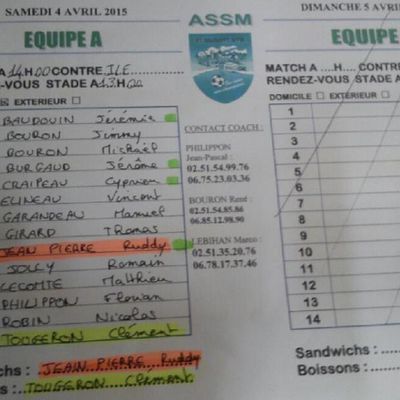 SAMEDI 4 AVRIL 2015
EQUIPE A
A 14H00 CONTRE ILE
-VOUS STADE A 13H00
EXTERIEUR
BAUDOUIN Jérémie
BOURON Jimmy
BOURON Michaël
BURGAUD Jérôme
CRAIPEAU Cyprien
ELINEAU Vincent
GARANDEAU Manuel
GIRARD Thomas
JEAN PIERRE Ruddy
JOLLY Romain
LECOMTE Matthieu
PHILIPPON Florian
ROBIN Nicolas
TOUGERON Clément
chs : JEAN PIERRE Ruddy
s : TOUGERON Clément
ASSM
CONTACT COACH :
PHILIPPON
Jean-Pascal :
02.51.54.99.76
06.75.23.03.36
BOURON René :
02.51.54.85.86
06.85.12.98.90
LEBIHAN Marco :
02.51.35.20.76
06.78.17.37.46
DIMANCHE 5 AVRIL
EQUIPE
MATCH A ....H.... CONTRE
RENDEZ-VOUS STADE A
DOMICILE EXTÉRIEUR
1
2
3
4
5
6
7
8
9
10
11
12
13
14
Sandwichs :
Boissons :